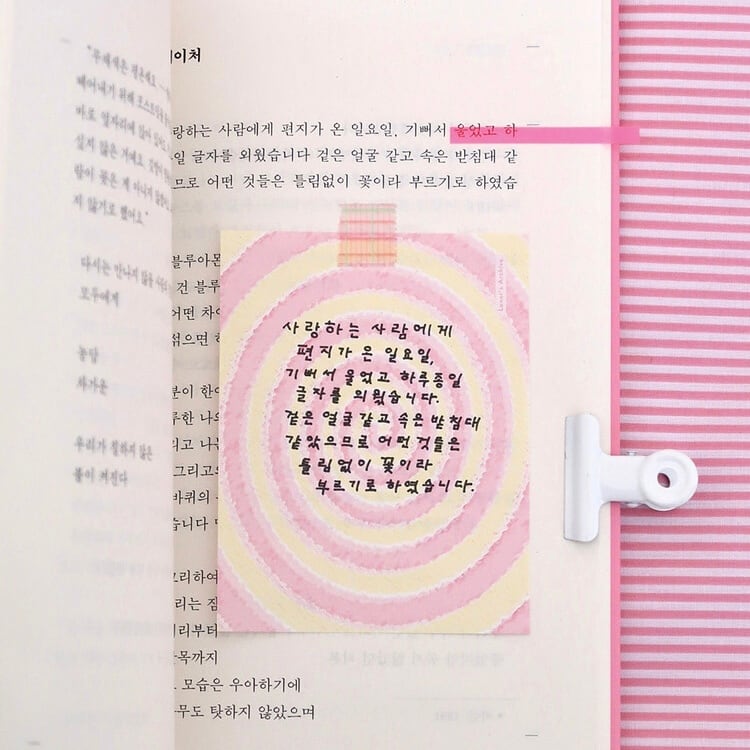 "무채색은 평온해요
모두에게
농담
차가운
우리가 칠하지 않은
불이 켜진다
이처
랑하는 사람에게 편지가 온 일요일, 기뻐서 울었고 하
일 글자를 외웠습니다 겉은 얼굴 같고 속은 받침대 같
므로 어떤 것들은 틀림없이 꽃이라 부르기로 하였습
블루아몬
건 블루
어떤 차이
섞으면 하
분이 한
루한 나의
리고 나는
그리고
바퀴의
습니다
그리하여
리는 짐
리부터
목까지
모습은 우아하기에
무도 탓하지 않았으며
Lover's Archive
사랑하는 사람에게
편지가 온 일요일,
기뻐서 울었고 하루종일
글자를 외웠습니다.
겉은 얼굴같고 속은 받침대
같았으므로 어떤것들은
틀림없이 꽃이라
부르기로 하였습니다.